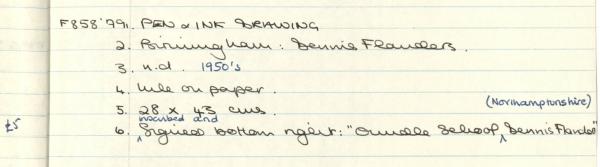 F858'99. 1. PEN & INK DRAWING
2. Birmingham: Dennis Flanders.
3. n.d. 1950's
4. Ink on paper.
5. 28 x 43 cms.
(Northamptonshire)
inscribed and
£5 6. ^ Signed bottom right: "Oundle School, ^ Dennis Flanders"